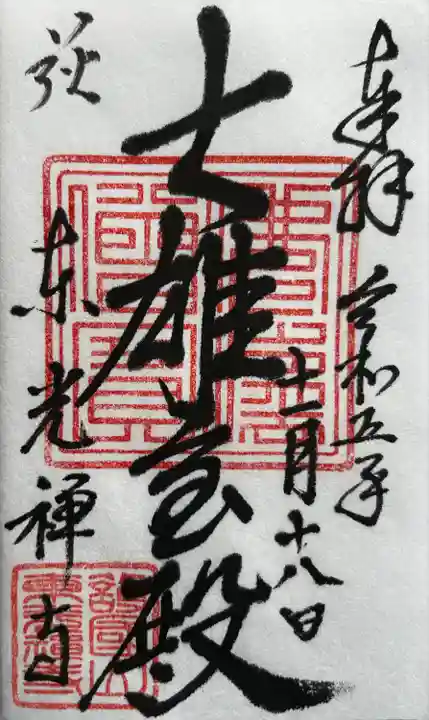 奉拝 令和五年
十一月十八日
大雄宝殿
萩
東光禅寺